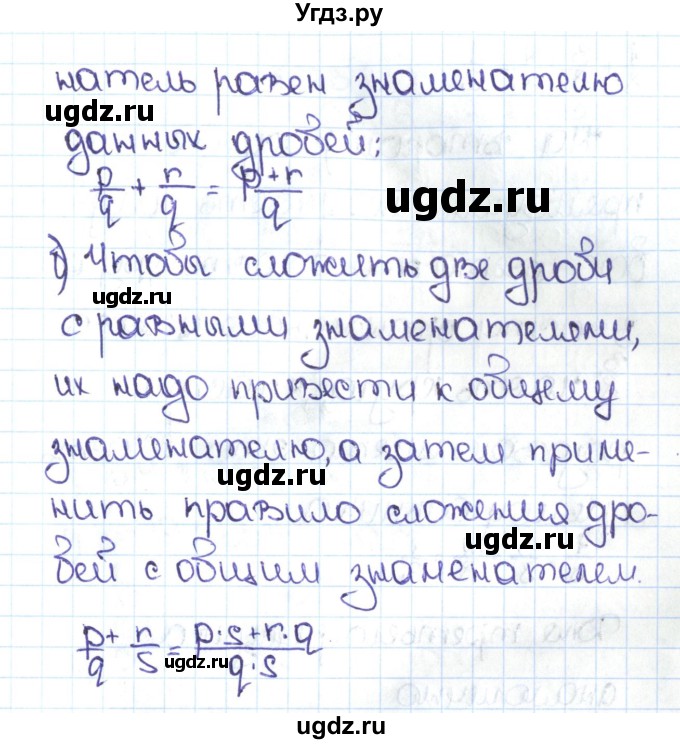 Угдз.ру
натель равен знаменателю
ugdz.ru
данных дробей:
p/q + r/q = p+r/q
ugdz.ru
б) Чтобы сложить две дроби
ugdz.ru
с равными знаменателями,
их надо привести к общему
знаменателю, а затем приме-
ugdz.ru
нить правило сложения дро-
ugdz.ru
бей с общим знаменателем.
p/q + r/s = p·s+r·q/q·s
ugdz.ru
ugdz.ru